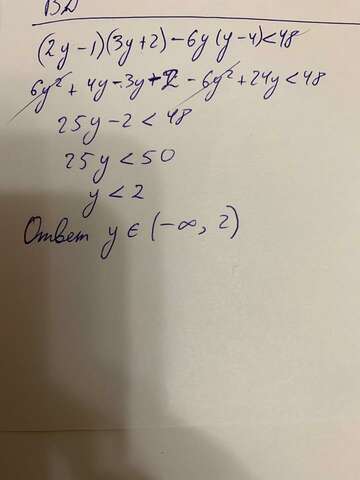 ВД
(2y-1)(3y+2)-6y(y-4)<48
6y²+4y-3y-2-6y²+24y<48
25y-2<48
25y<50
y<2
Ответ y∈(-∞, 2)